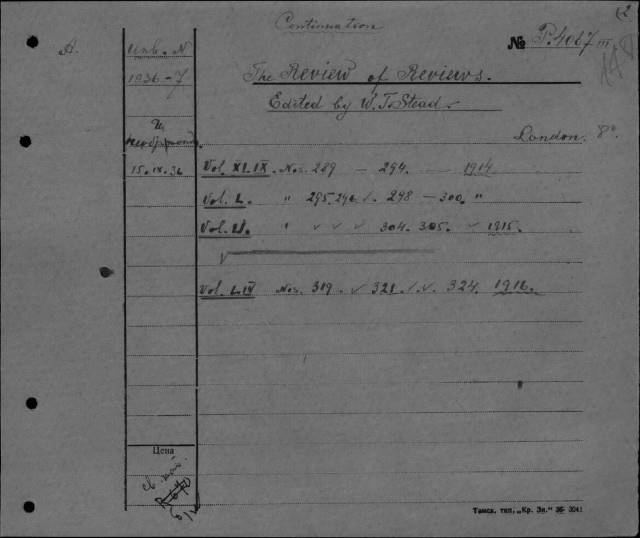 Continuation
(2
А. Инв. N № P.4087 III
1936-7 The Review of Reviews.
Edited by W. T. Stead.
London. 8°
15.IX.36 Vol. XLIX. Nos. 289 — 294. — 1914
Vol. L. " 295.296 ✓. 298 — 300. "
Vol. LI. " ✓ ✓ ✓ 304. 305. ✓ 1915.
✓
Vol. LIV Nos. 319. ✓ 321 ✓. ✓. 324. 1916.
Цена
Томск. тип. „Кр. Зн." 36 3241